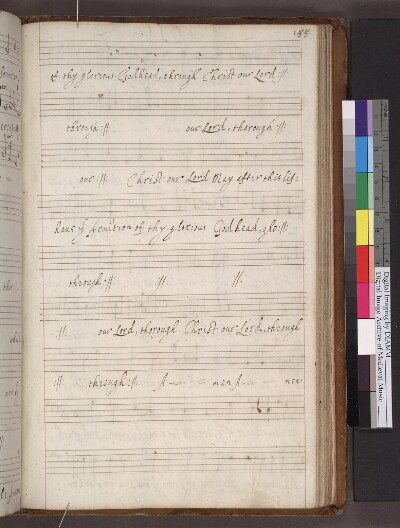 155
of thy glorious Godhead, through Christ our Lord :||:
through :||: our Lord, thorough :||:
our :||: Christ our Lord May after this life
have yͤ fruition of thy glorious Godhead, glo :||:
through :||: :||: :||:
:||: our Lord, thorough Christ our Lord, through
:||: through :||: A— men A— men
Digital Imaging by DIAMM
Digital Image Archive of Medieval Music